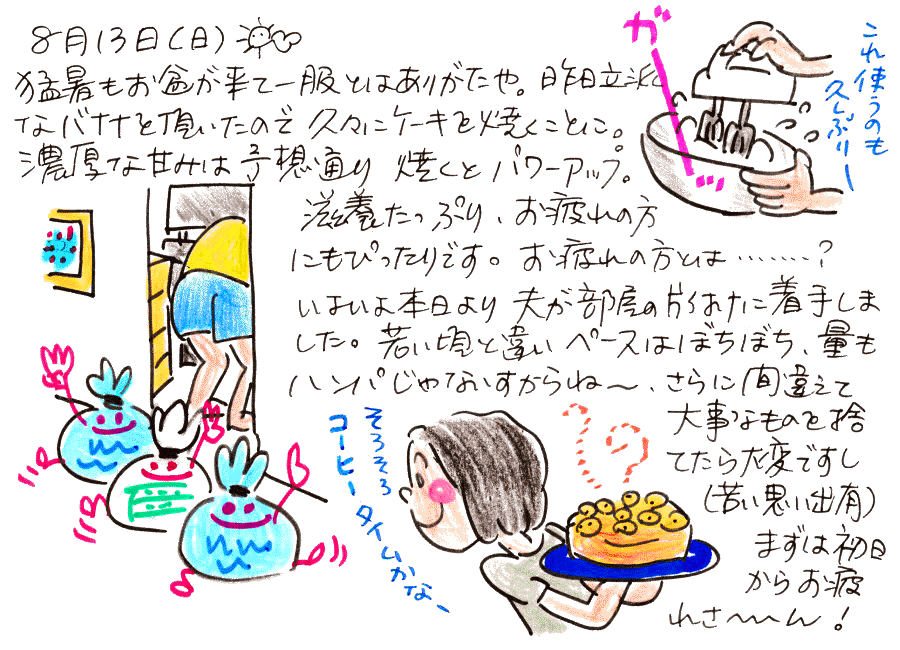 8月13日(日)
猛暑もお盆が来て一服とはありがたや。昨日立派
なバナナを頂いたので久々にケーキを焼くことに。
濃厚な甘みは予想通り焼くとパワーアップ。
滋養たっぷり、お疲れの方
にもぴったりです。お疲れの方とは………?
いよいよ本日より夫が部屋の片づけに着手しま
した。若い頃と違いペースはぼちぼち、量も
ハンパじゃないすからね〜、さらに間違えて
大事なものを捨
てたら大変ですし
(苦い思い出有)
まずは初日
からお疲
れさ〜〜ん!
これ使うのも
久しぶりー
ガーッ
そろそろ
コーヒータイムかなー